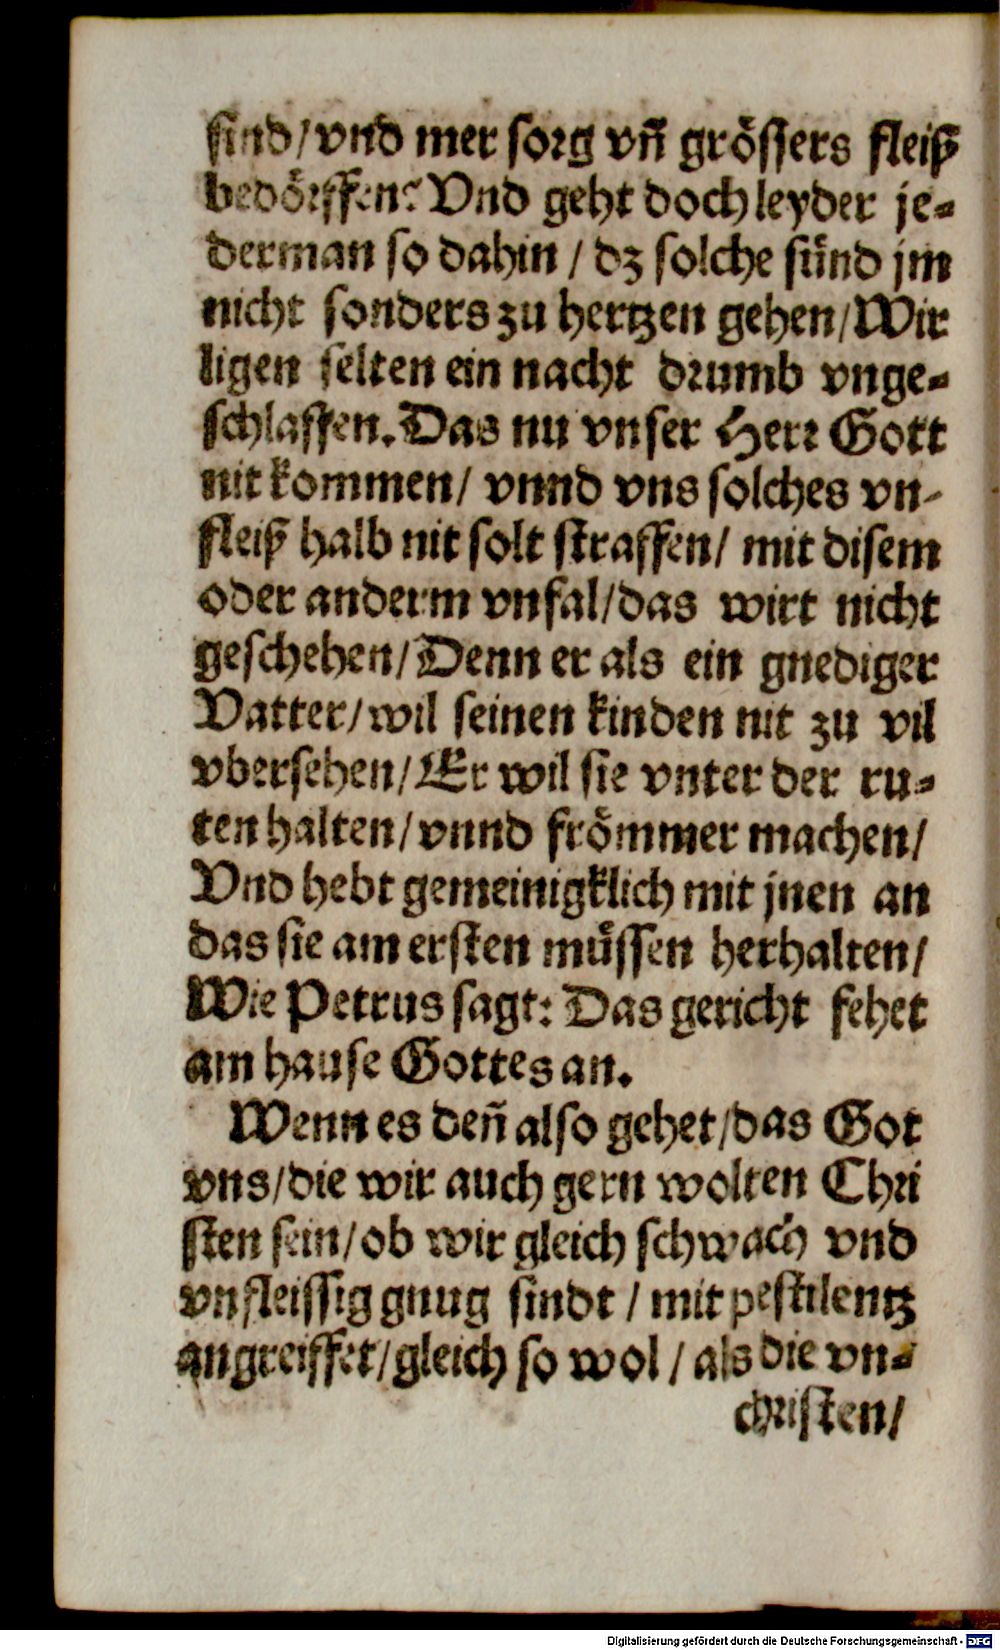 sind/vnd mer sorg vñ grössers fleiß
bedörffen? Vnd geht doch leyder je⸗
derman so dahin / dz solche sünd jm
nicht sonders zu hertzen gehen/Wir
ligen selten ein nacht drumb vnge⸗
schlaffen. Das nu vnser Herr Gott
nit kommen/ vnnd vns solches vn-
fleiß halb nit solt straffen/ mit disem
oder anderm vnfal/das wirt nicht
geschehen/Denn er als ein gnediger
Vatter/wil seinen kinden nit zu vil
vbersehen/Er wil sie vnter der ru⸗
ten halten/vnnd frömmer machen/
Vnd hebt gemeinigklich mit jnen an
das sie am ersten müssen herhalten/
Wie Petrus sagt: Das gericht fehet
am hause Gottes an.
Wenn es deñ also gehet/das Got
vns/die wir auch gern wolten Chri
sten sein/ob wir gleich schwach vnd
vnfleissig gnug sindt / mit pestilentz
angreiffet/gleich so wol / als die vn⸗
christen/
Digitalisierung gefördert durch die Deutsche Forschungsgemeinschaft - DFG